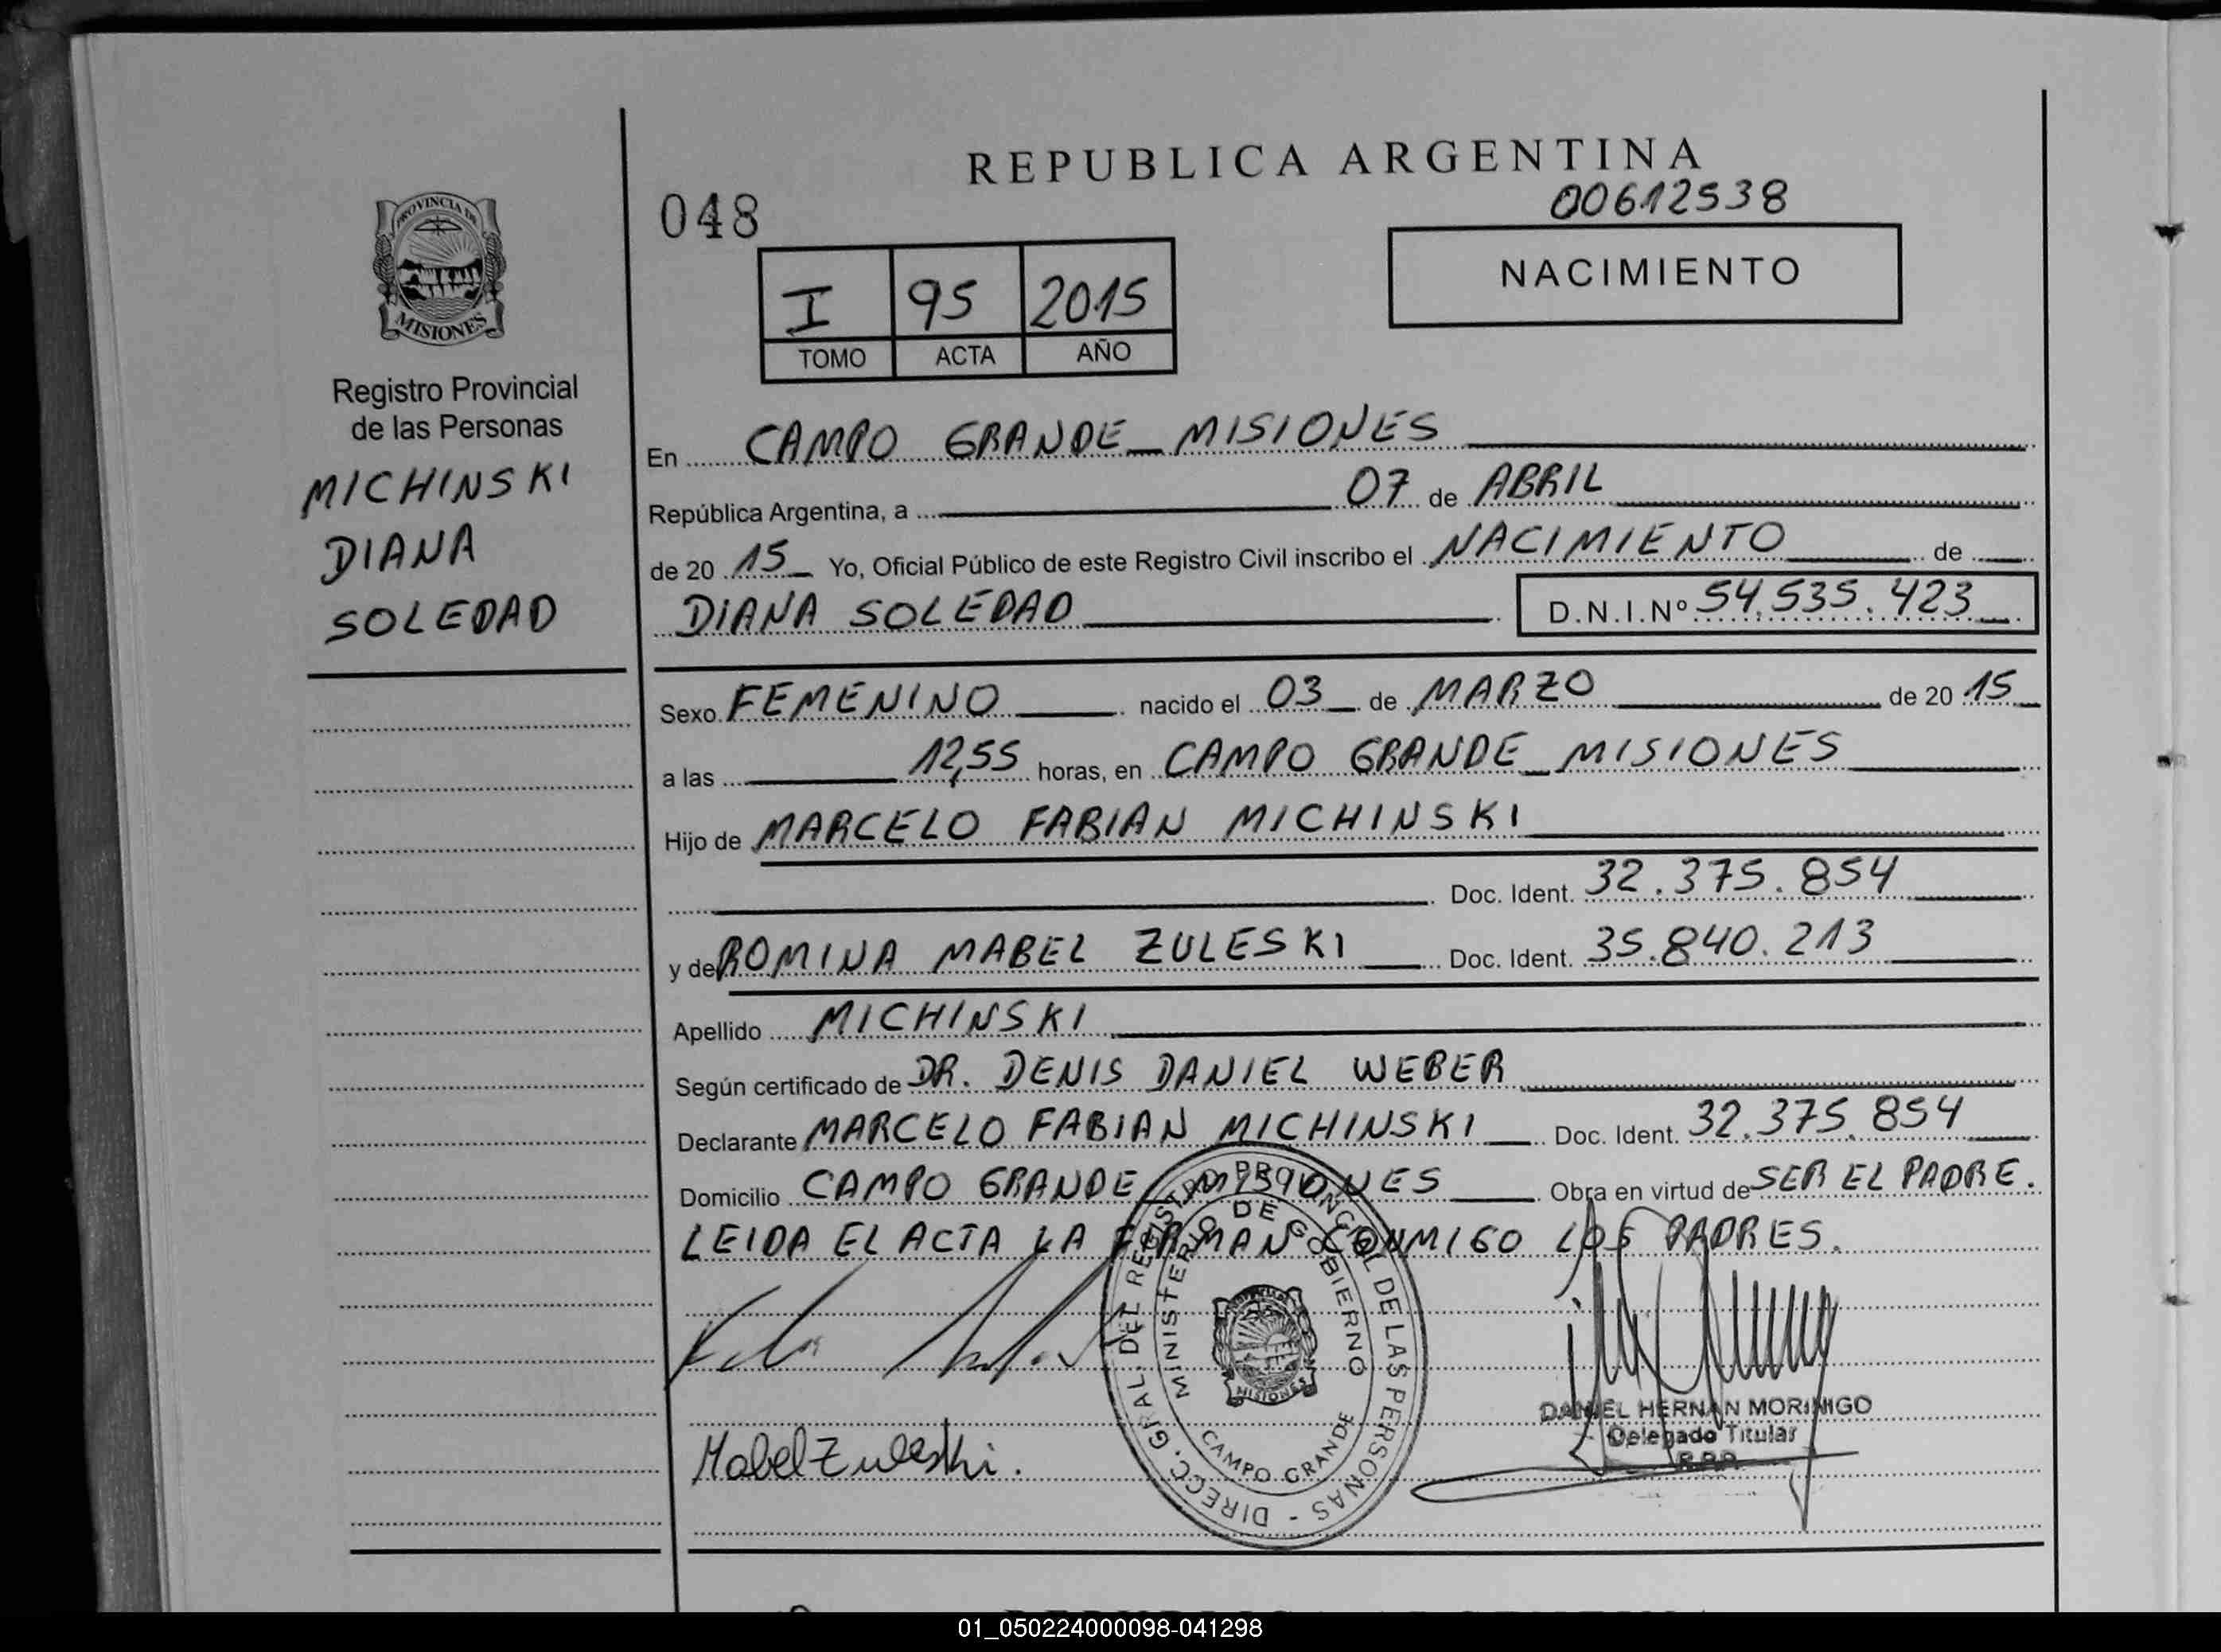 REPUBLICA ARGENTINA
00612538
048
NACIMIENTO
I 95 2015
TOMO ACTA AÑO
PROVINCIA DE
MISIONES
Registro Provincial
de las Personas
MICHINSKI
DIANA
SOLEDAD
En CAMPO GRANDE_ MISIONES
República Argentina, a 07 de ABRIL
de 20 15 Yo, Oficial Público de este Registro Civil inscribo el NACIMIENTO de
DIANA SOLEDAD D.N.I.Nº 54.535.423
Sexo FEMENINO nacido el 03 de MARZO de 20 15
a las 12,55 horas, en CAMPO GRANDE_ MISIONES
Hijo de MARCELO FABIAN MICHINSKI
Doc. Ident. 32.375.854
y de ROMINA MABEL ZULESKI Doc. Ident. 35.840.213
Apellido MICHINSKI
Según certificado de DR. DENIS DANIEL WEBER
Declarante MARCELO FABIAN MICHINSKI Doc. Ident. 32.375.854
Domicilio CAMPO GRANDE MISIONES Obra en virtud de SER EL PADRE.
LEIDA EL ACTA LA FIRMAN CONMIGO LOS PADRES.
DIRECC. GRAL. DEL REGISTRO PROVINCIAL DE LAS PERSONAS -
MINISTERIO DE GOBIERNO
MISIONES
CAMPO GRANDE
DANIEL HERNAN MORINIGO
Delegado Titular
R.P.P.
Mabel Zuleski.
01_050224000098-041298